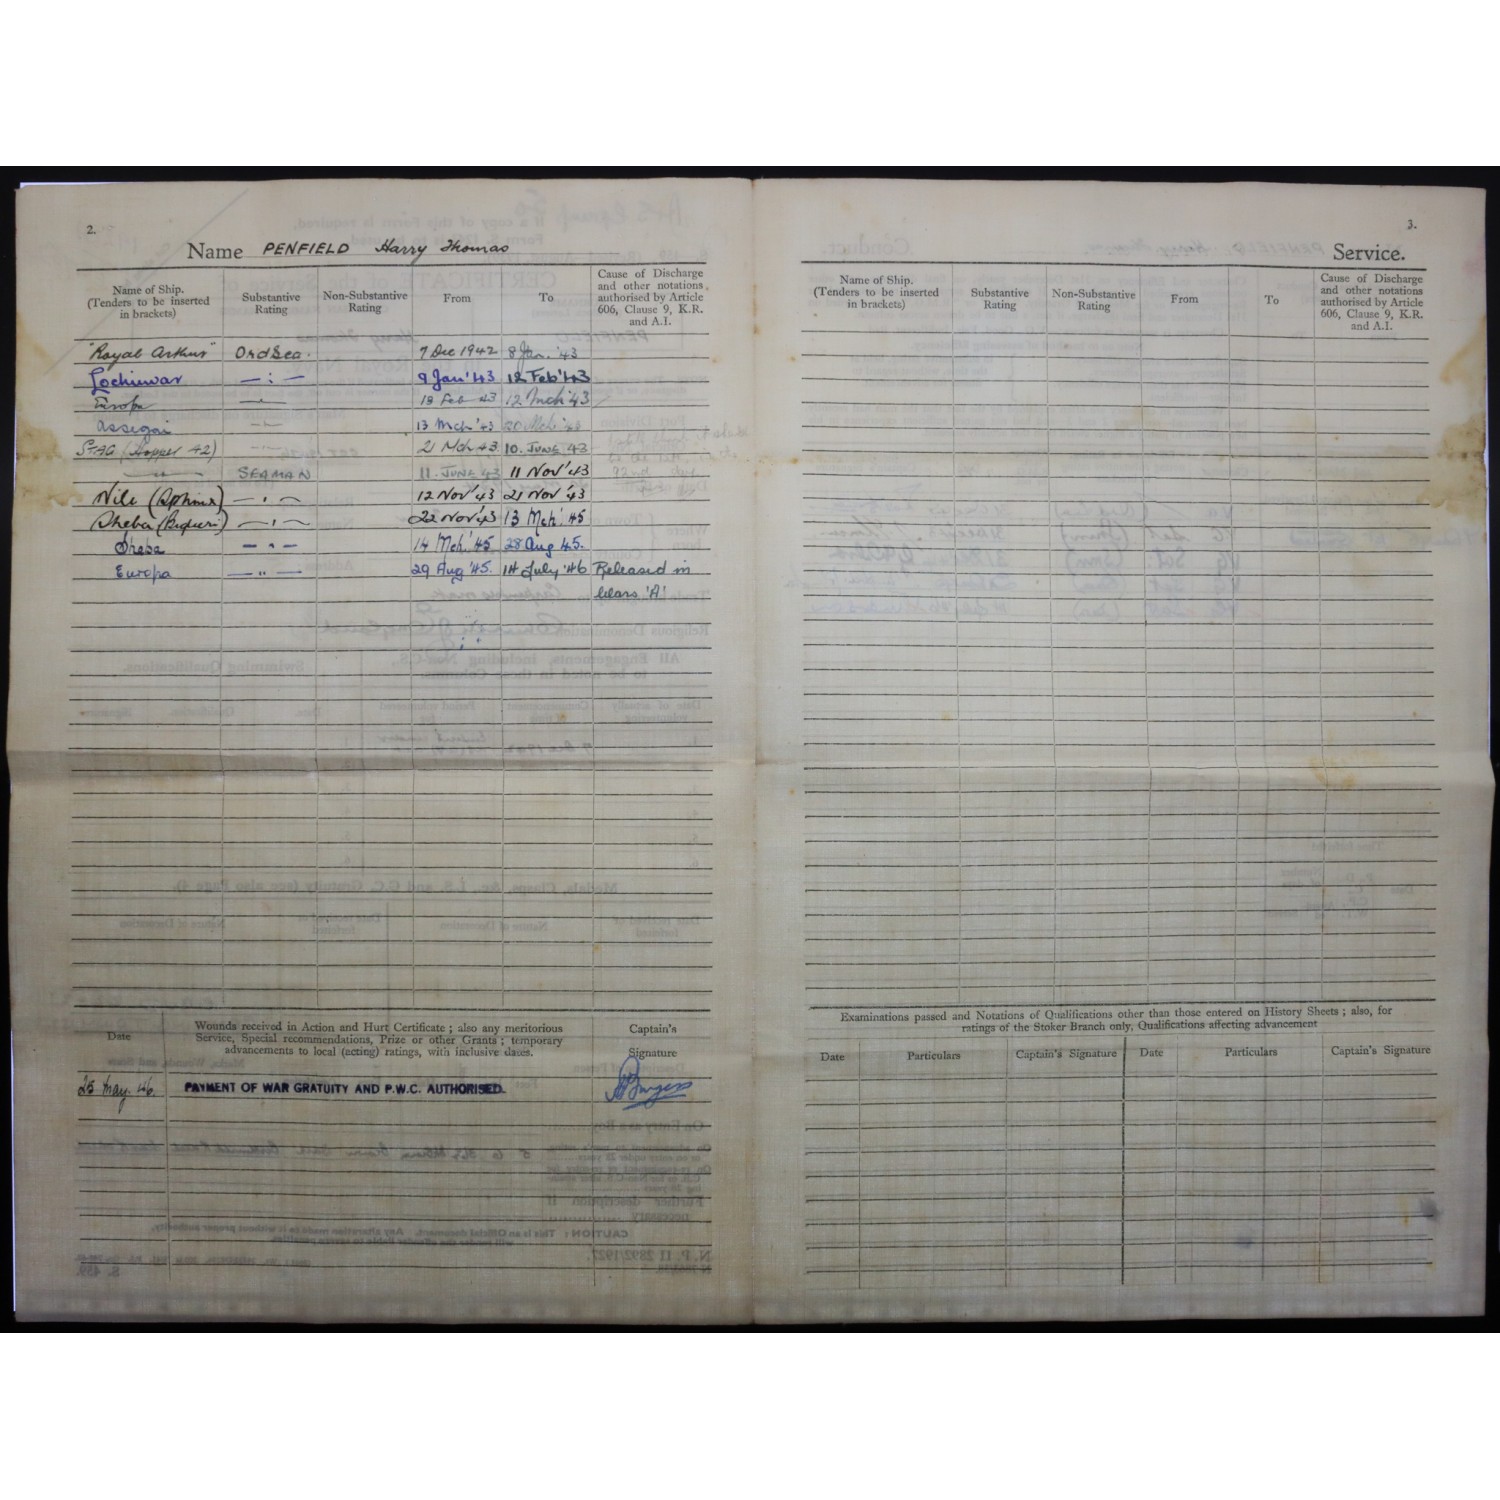 2.
Name PENFIELD Harry Thomas
Name of Ship. (Tenders to be inserted in brackets) Substantive Rating Non-Substantive Rating From To Cause of Discharge and other notations authorised by Article 606, Clause 9, K.R. and A.I.
"Royal Arthur" Ord Sea. 7 Dec 1942 8 Jan. '43
Lochinvar — : — 9 Jan '43 12 Feb '43
Europa 13 Feb 43 12 Mch '43
Assegai 13 Mch '43 20 Mch '43
STAG (Hopper 42) 21 Mch 43 10. JUNE 43
— " — SEAMAN 11. JUNE 43 11 Nov '43
Nile (Sphinx) — " — 12 Nov '43 21 Nov '43
Sheba 22 Nov '43 13 Mch '45
Sheba — " — 14 Mch '45 28 Aug 45.
Europa — " — 29 Aug '45. 14 July '46 Released in
Class 'A'
Date Wounds received in Action and Hurt Certificate ; also any meritorious Service, Special recommendations, Prize or other Grants ; temporary advancements to local (acting) ratings, with inclusive dates. Captain's Signature
25 May. 46. PAYMENT OF WAR GRATUITY AND P.W.C. AUTHORISED. Burgess
3.
Service.
Name of Ship. (Tenders to be inserted in brackets) Substantive Rating Non-Substantive Rating From To Cause of Discharge and other notations authorised by Article 606, Clause 9, K.R. and A.I.
Examinations passed and Notations of Qualifications other than those entered on History Sheets ; also, for
ratings of the Stoker Branch only, Qualifications affecting advancement
Date Particulars Captain's Signature Date Particulars Captain's Signature